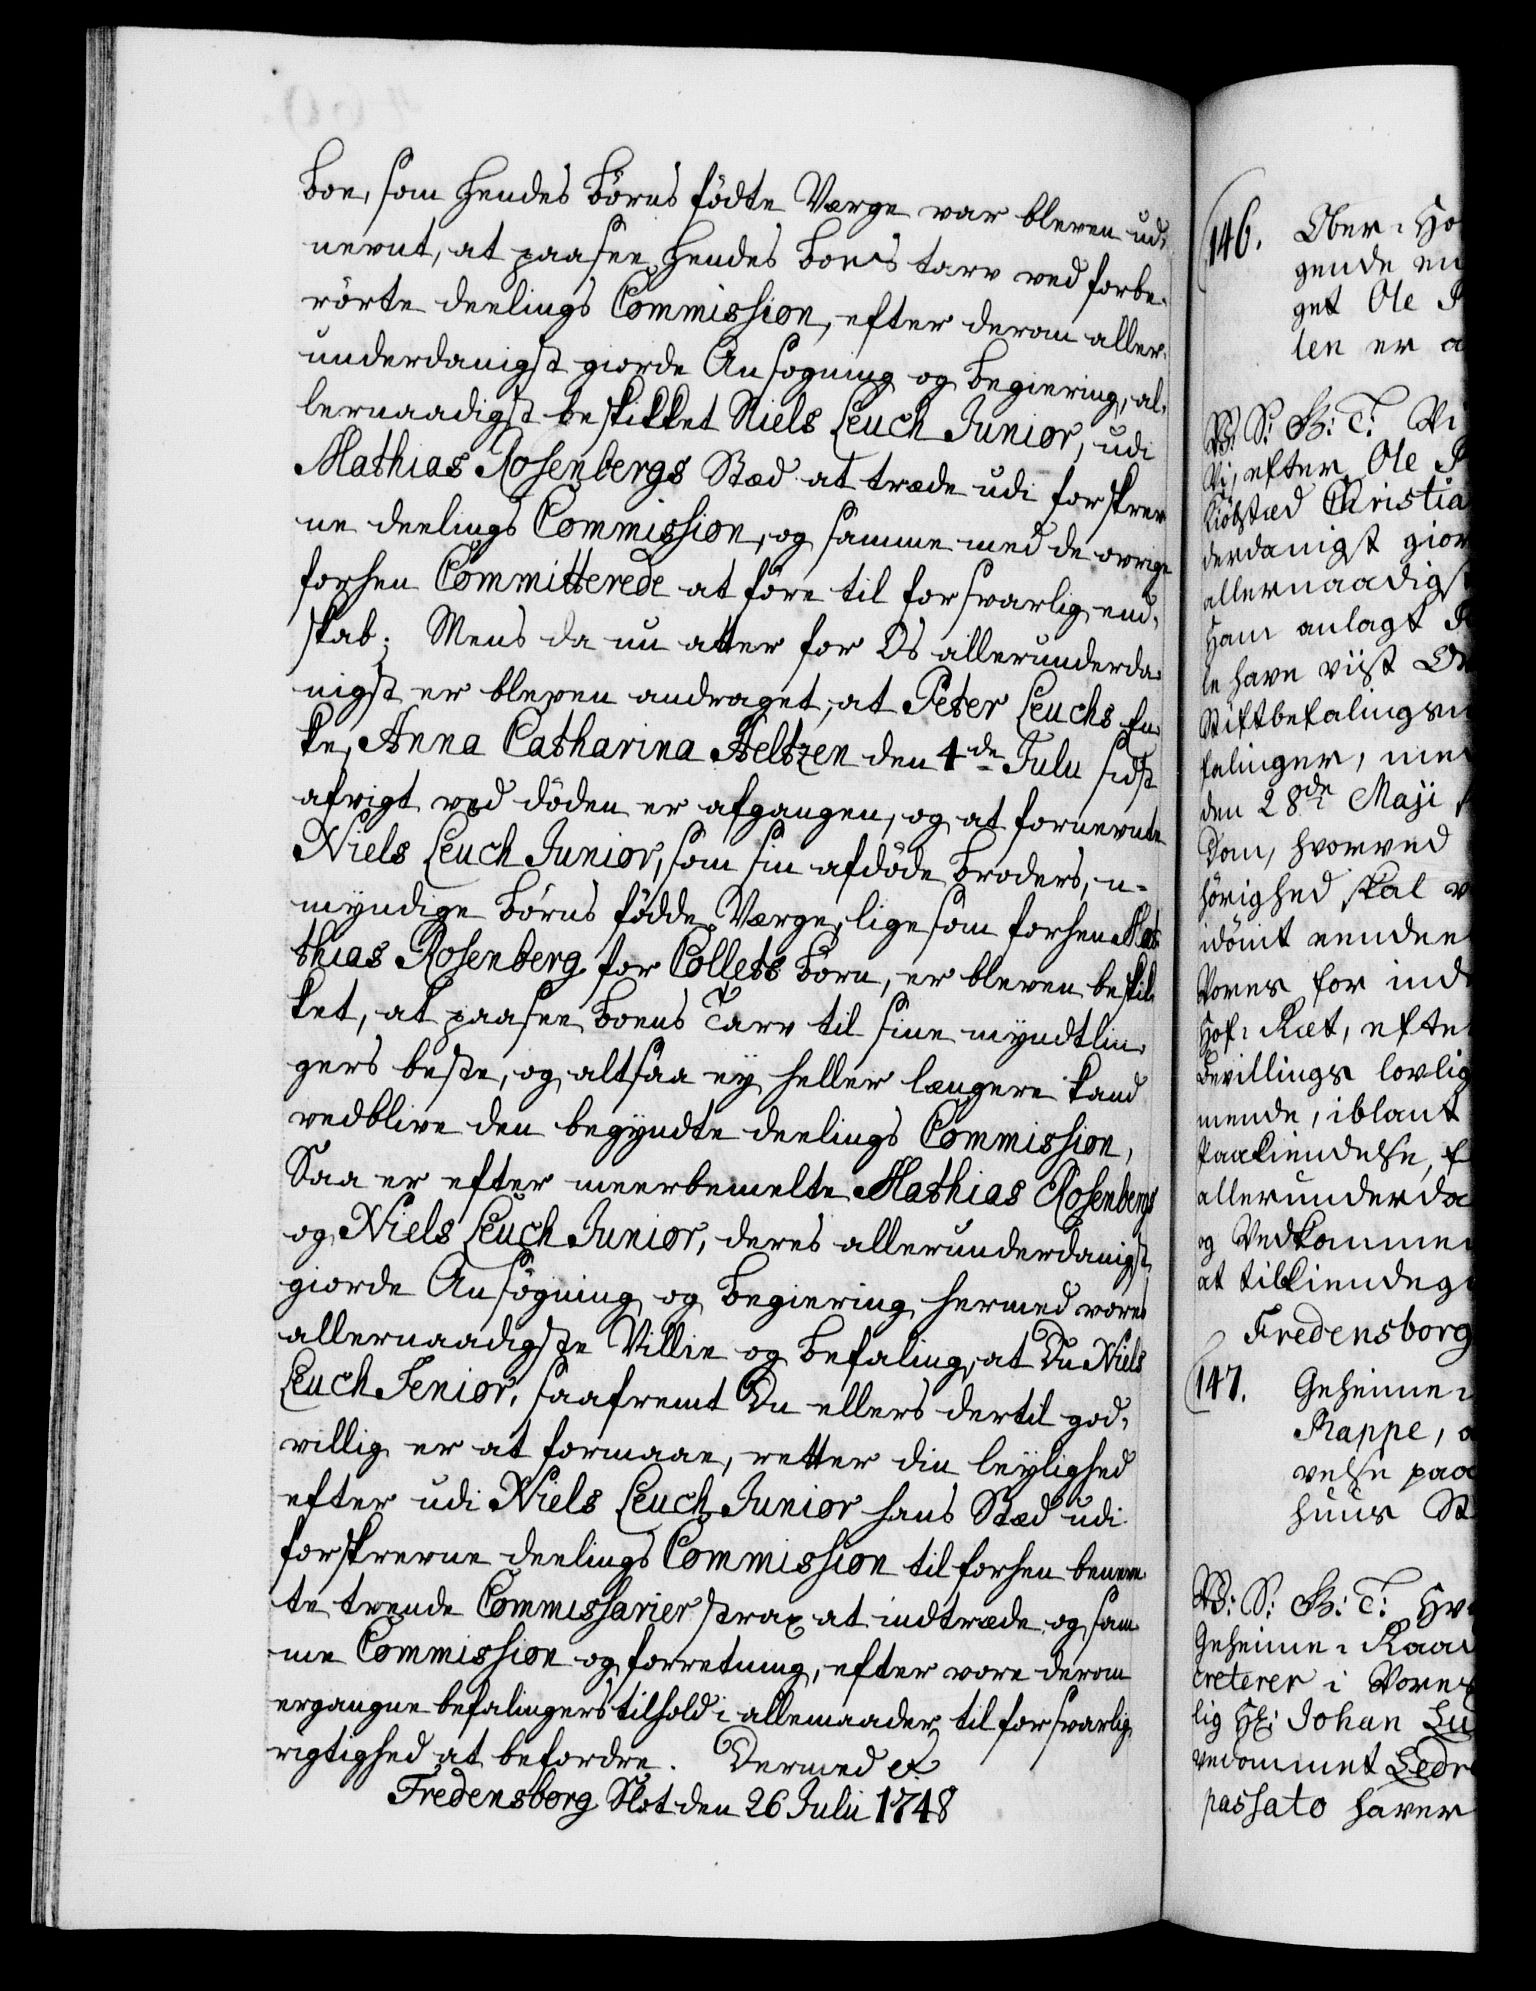 boe, som hendes börns födte Værge var bleven ud-
nevnt, at paasee hendes boes tarv ved forbe-
rörte deelings Commission, efter derom aller-
underdanigst giorde Ansogning og begiering, al-
lernaadigst beskikket Niels Leuch Junior, udi
Mathias Rosenbergs Stæd at træde udi forskrev
ne deelings Commission, og samme med de ovrige
forhen Committerede at före til forsvarlig end-
skab; Mens da nu atter for Os allerunderda-
nigst er bleven andraget, at Peter Leuchs En-
ke, Anna Catharina Heltzen den 4de Julii sidst
afvigt ved döden er afgangen, og at fornevnte
Niels Leuch Junior, som sin afdöde broders, u-
myndige börns födde Værge, ligesom forhen Ma-
thias Rosenberg for Colletts börn, er bleven beskik-
ket, at paasee boens Tarv til sine myndtlin-
gers beste, og altsaa ey heller længere kand
vedblive den begyndte deelings Commission,
Saa er efter meerbemelte Mathias Rosenbergs
og Niels Leuch Junior, deres allerunderdanigst
giorde Ansögning og begiering hermed vores
allernaadigste Villie og befaling, at Du Niels
Leuch Senior, saafremt Du ellers dertil god-
villig er at formaae, retter din leylighed
efter udi Niels Leuch Junior hans Stæd udi
forskrevne deelings Commission til forhen benevn-
te trende Commissarier strax at indtræde og sam-
me Commission og forretning, efter vore derom
ergangne befalingers tilhold i allemaader til forsvarlig
rigtighed at befordre. Dermed &
Fredensborg Slot den 26 Julii 1748
146. Ober-Ho
gende en
get Ole
len er a
W: S: G: T: Vi
Vi, efter Ole
Kiöbstæd Christia
derdanigst gior
allernaadigst
ham anlagt
le have viist
Stiftbefalings
falinger, med
den 28de Maji
Dom, hvorved
hörighed skal
idömt
Vores for ind
Hof-Ræt, efte
bevillings lovlig
mende, iblant
Paakiendelse,
allerunderda
og Vedkommen
at tilkiendegi
Fredensborg
147. Geheime-
Rappe,
velse paa
huus St
W: S: G: T: Hv
Geheime-Raad
creterer i Vores
lig Hr: Johan Lu
Ledr
passato haver